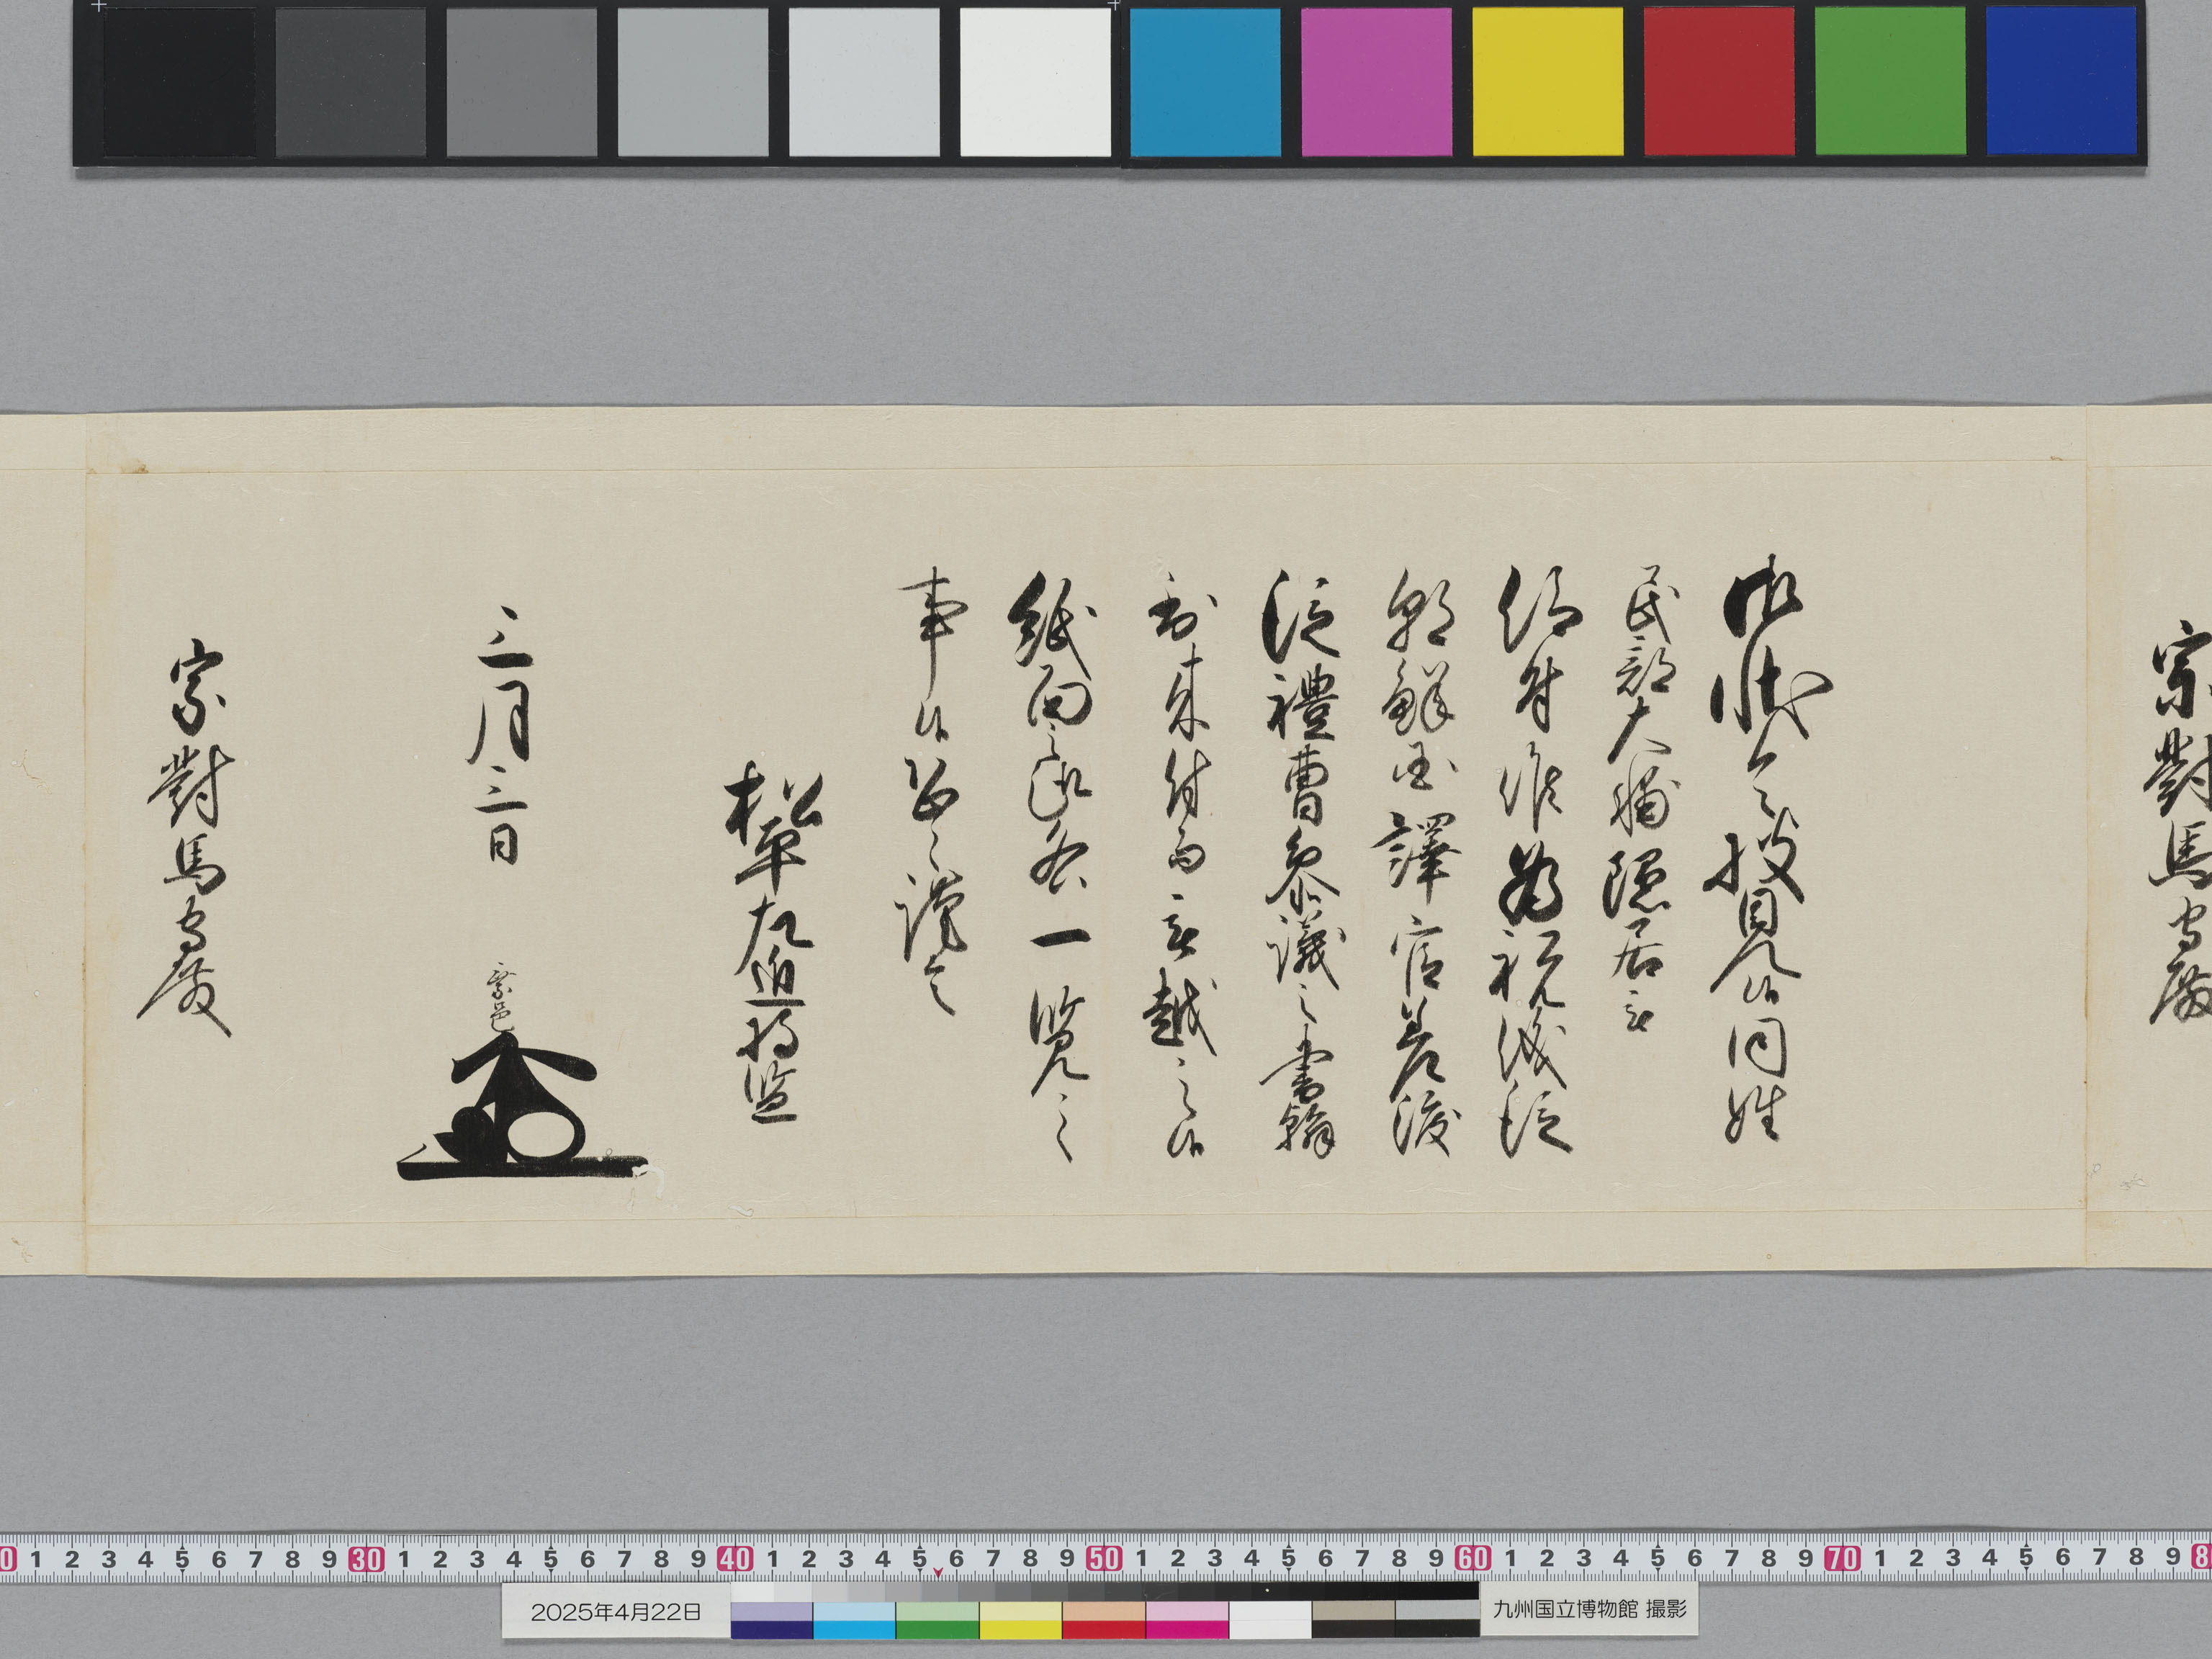 宗對馬守殿
御状令披見候同姓
民部大輔隠居被
仰付候為祝儀従
朝鮮国譯官差渡
従禮曹参議之書翰
到来付而被越之候
紙面之趣令一覧之
事候恐々謹言
松平左近将監
三月三日
乗邑
宗對馬守殿
0 1 2 3 4 5 6 7 8 9 30 1 2 3 4 5 6 7 8 9 40 1 2 3 4 5 6 7 8 9 50 1 2 3 4 5 6 7 8 9 60 1 2 3 4 5 6 7 8 9 70 1 2 3 4 5 6 7 8 9 8
2025年4月22日
九州国立博物館 撮影